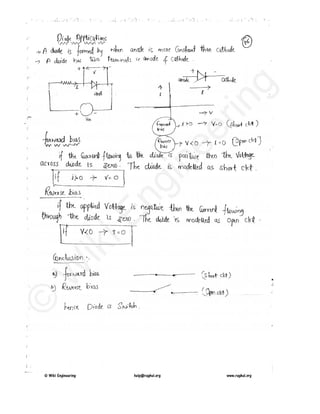 Diode Applications
→ A diode is formed by when anode is more Constant than cathode.
→ A diode has two Terminals ie anode & cathode.
+ V -
I
Vin
anode
Cathode
I
→ V
Forward bias → I>0 → V=0 (short ckt)
Reverse bias → V<0 → I=0 (open ckt)
forward bias
if the Current flowing to the diode is positive then the Voltage
across diode is zero. The diode is modelled as short ckt
If I>0 → V=0
Reverse bias
if the applied Voltage is negative then the Current flowing
through the diode is zero. The diode is modelled as open ckt.
If V<0 → I=0
Conclusion :-
a) forward bias (short ckt)
b) Reverse bias (open ckt)
hence Diode is Switch.
© Wiki Engineering
© Wiki Engineering help@raghul.org www.raghul.org